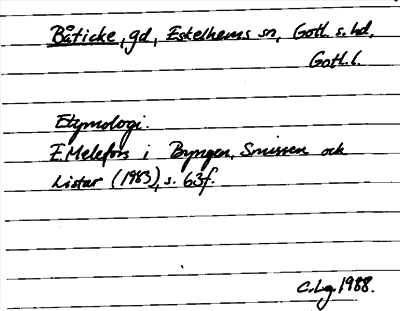 Båticke, gd, Eskelhems sn, Gotl. s. hd,
Gotl. l.
Etymologi.
E Melefors i Byngen, Snissen och
Listar (1983), s. 63f.
C. Lg. 1988.